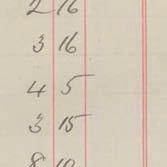 2 16
3 16
4 5
3 15
8 10